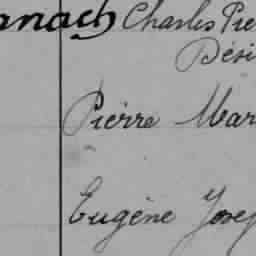 anach Charles Pie
Dési
Pierre Mar
Eugène Josep